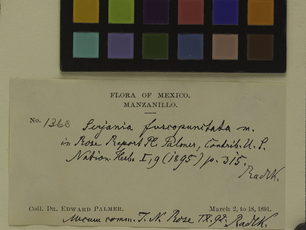 FLORA OF MEXICO.
MANZANILLO.
No. 1366 Serjania fuscopunctata m.
in Rose Report Pl. Palmer, Contrib. U.S.
Nation. Herb. I, 9 (1895) p. 315.
Radlk.
Coll. Dr. Edward Palmer. March 2, to 18, 1891.
comm. J. N. Rose Radlk.